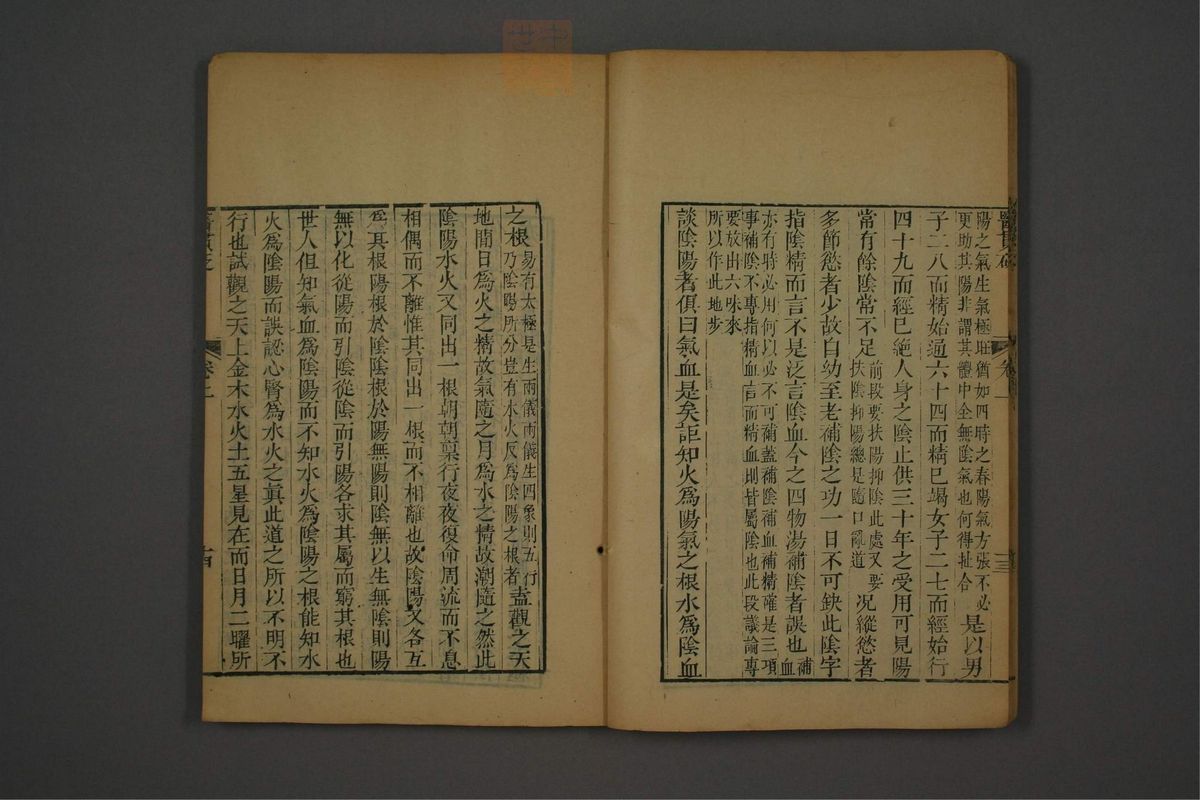 陽之氣生氣極旺猶如四時之春陽氣方張不必
更助其陽非謂其體中全無陰氣也何得扯合
是以男
子二八而精始通六十四而精已竭女子二七而經始行
四十九而經已絕人身之陰止供三十年之受用可見陽
常有餘陰常不足
前段要扶陽抑陰此處又要
扶陰抑陽總是隨口亂道
况縱慾者
多節慾者少故自幼至老補陰之功一日不可缺此陰字
指陰精而言不是泛言陰血今之四物湯補陰者誤也
補
血
亦有時必用何以必不可補蓋補陰補血補精確是三項
事補陰不專指精血言而精血則皆屬陰也此段議論專
要放出六味來
所以作此地步
談陰陽者俱曰氣血是矣詎知火爲陽氣之根水爲陰血
之根
易有太極是生兩儀兩儀生四象則五行
乃陰陽所分豈有水火反爲陰陽之根者
盍觀之天
地間日爲火之精故氣隨之月爲水之精故潮隨之然此
陰陽水火又同出一根朝朝稟行夜夜復命周流而不息
相偶而不離惟其同出一根而不相離也故陰陽又各互
爲其根陽根於陰陰根於陽無陽則陰無以生無陰則陽
無以化從陽而引陰從陰而引陽各求其屬而窮其根也
世人但知氣血爲陰陽而不知水火爲陰陽之根能知水
火爲陰陽而誤認心腎爲水火之眞此道之所以不明不
行也試觀之天上金木水火土五星見在而日月二曜所